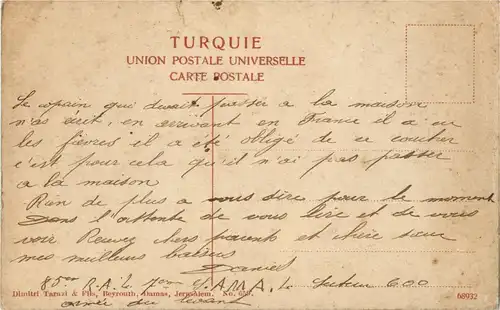 TURQUIE
UNION POSTALE UNIVERSELLE
CARTE POSTALE
Le copain qui devait passer a la maison
n'as ecrit, en arrivant en France il a eu
les fièvres il a été obligé de se coucher
c'est pour cela qu'il n'ai pas passer
a la maison
Rien de plus a vous dire pour le moment
Dans l'attente de vous lire et de vous
voir Recevez chers parents et chère sœur
mes meilleurs baisers
Daniel
85 R.A.L. 7 A.M.A. Secteur 600
armée du levant
Dimitri Tarazi & Fils, Beyrouth, Damas, Jerusalem. No.
68932